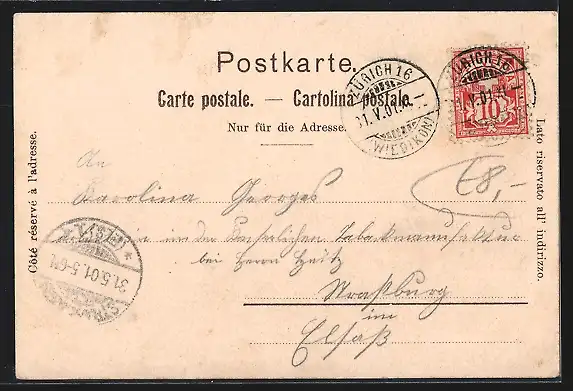 Postkarte.
Carte postale. — Cartolina postale.
Nur für die Adresse.
Côté réservé à l'adresse.
Lato riservato all' indirizzo.
ZÜRICH 16
31.V.01.
(WIEDIKON)
ZÜRICH 16
V.01.
10
€8,-
An
Karolina Georges
in der Kaiserlichen Tabakmanufaktur
bei Herrn Heitz
Straßburg
im
Elsaß
31.5.01. 5-6N